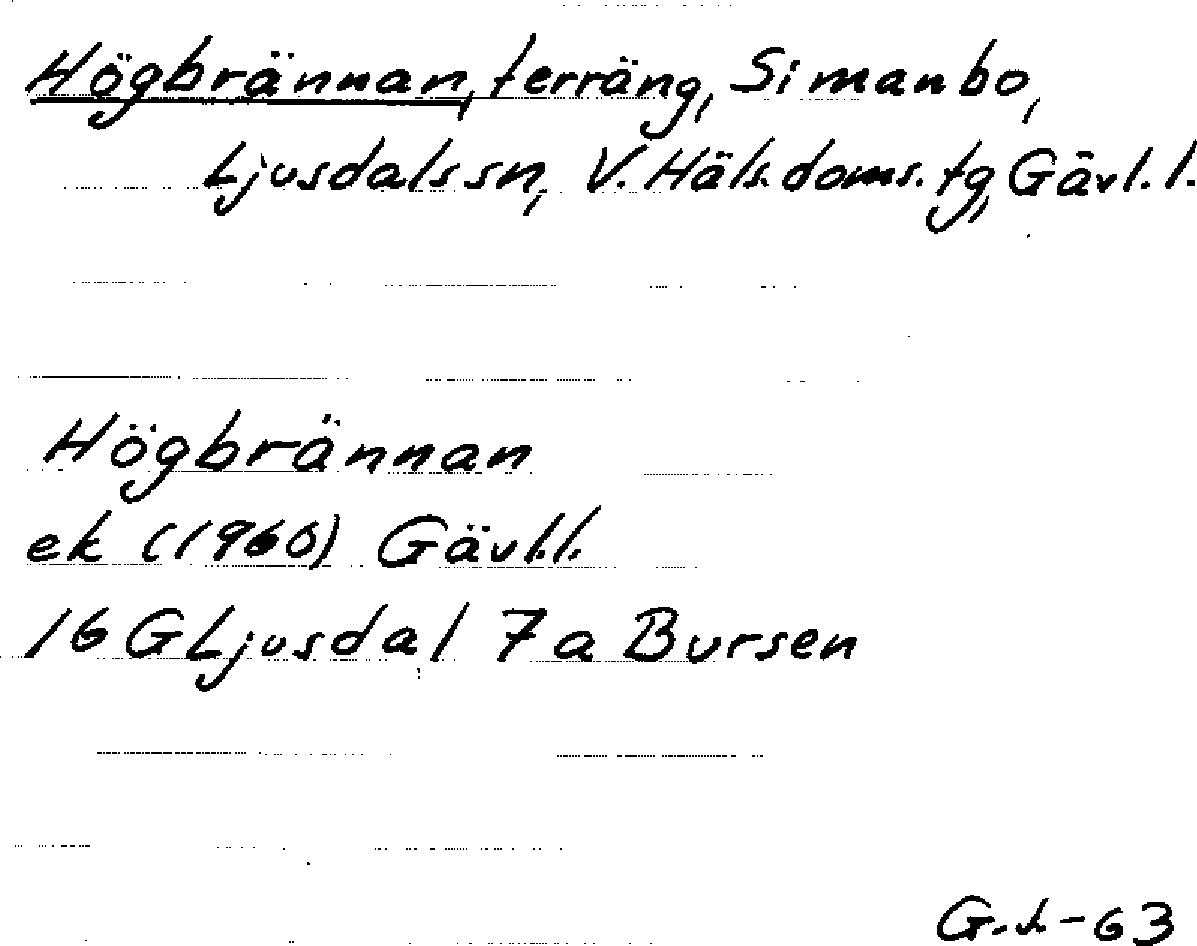 Högbrännan, terräng, Simanbo,
Ljusdals sn, V. Häls. doms. tg, Gävl. l.
Högbrännan
ek (1960) Gävl. l.
16 G Ljusdal 7a Bursen
-63